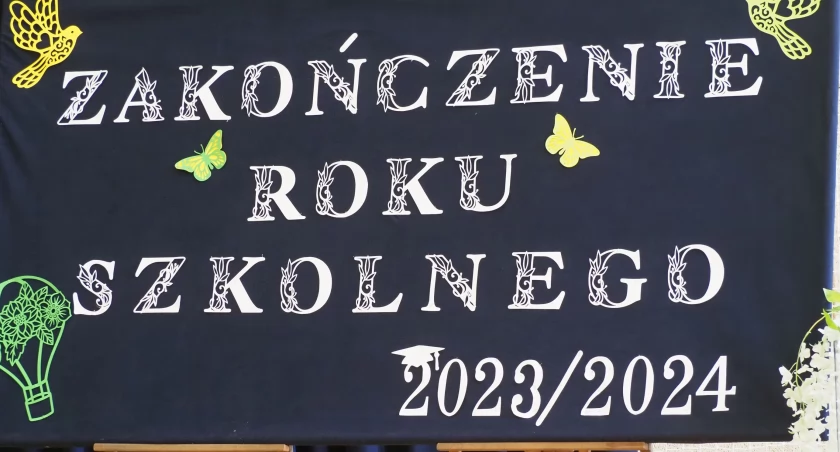 ZAKOŃCZENIE
ROKU
SZKOLNEGO
2023/2024